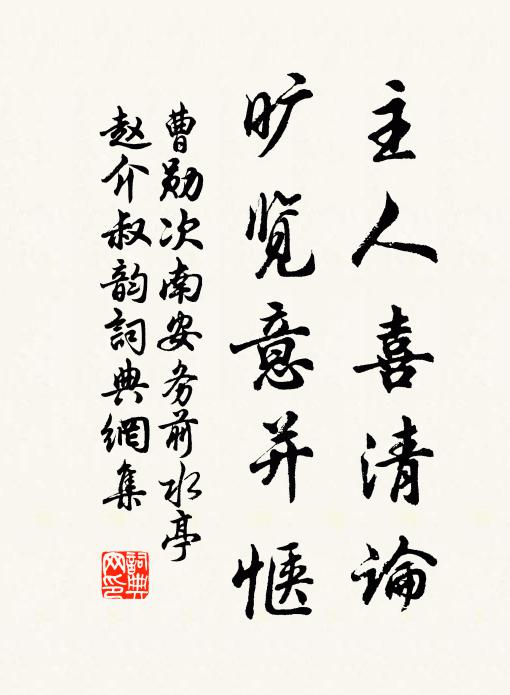 主人喜清論
旷览意并惬
曹勋次南安务前水亭
赵介叔韵詞典網集
詞典
网印